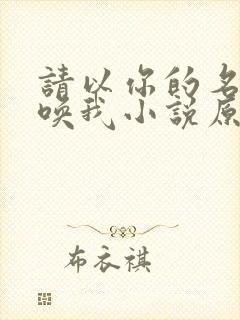 請以你的名
喚我小說原
布衣祺